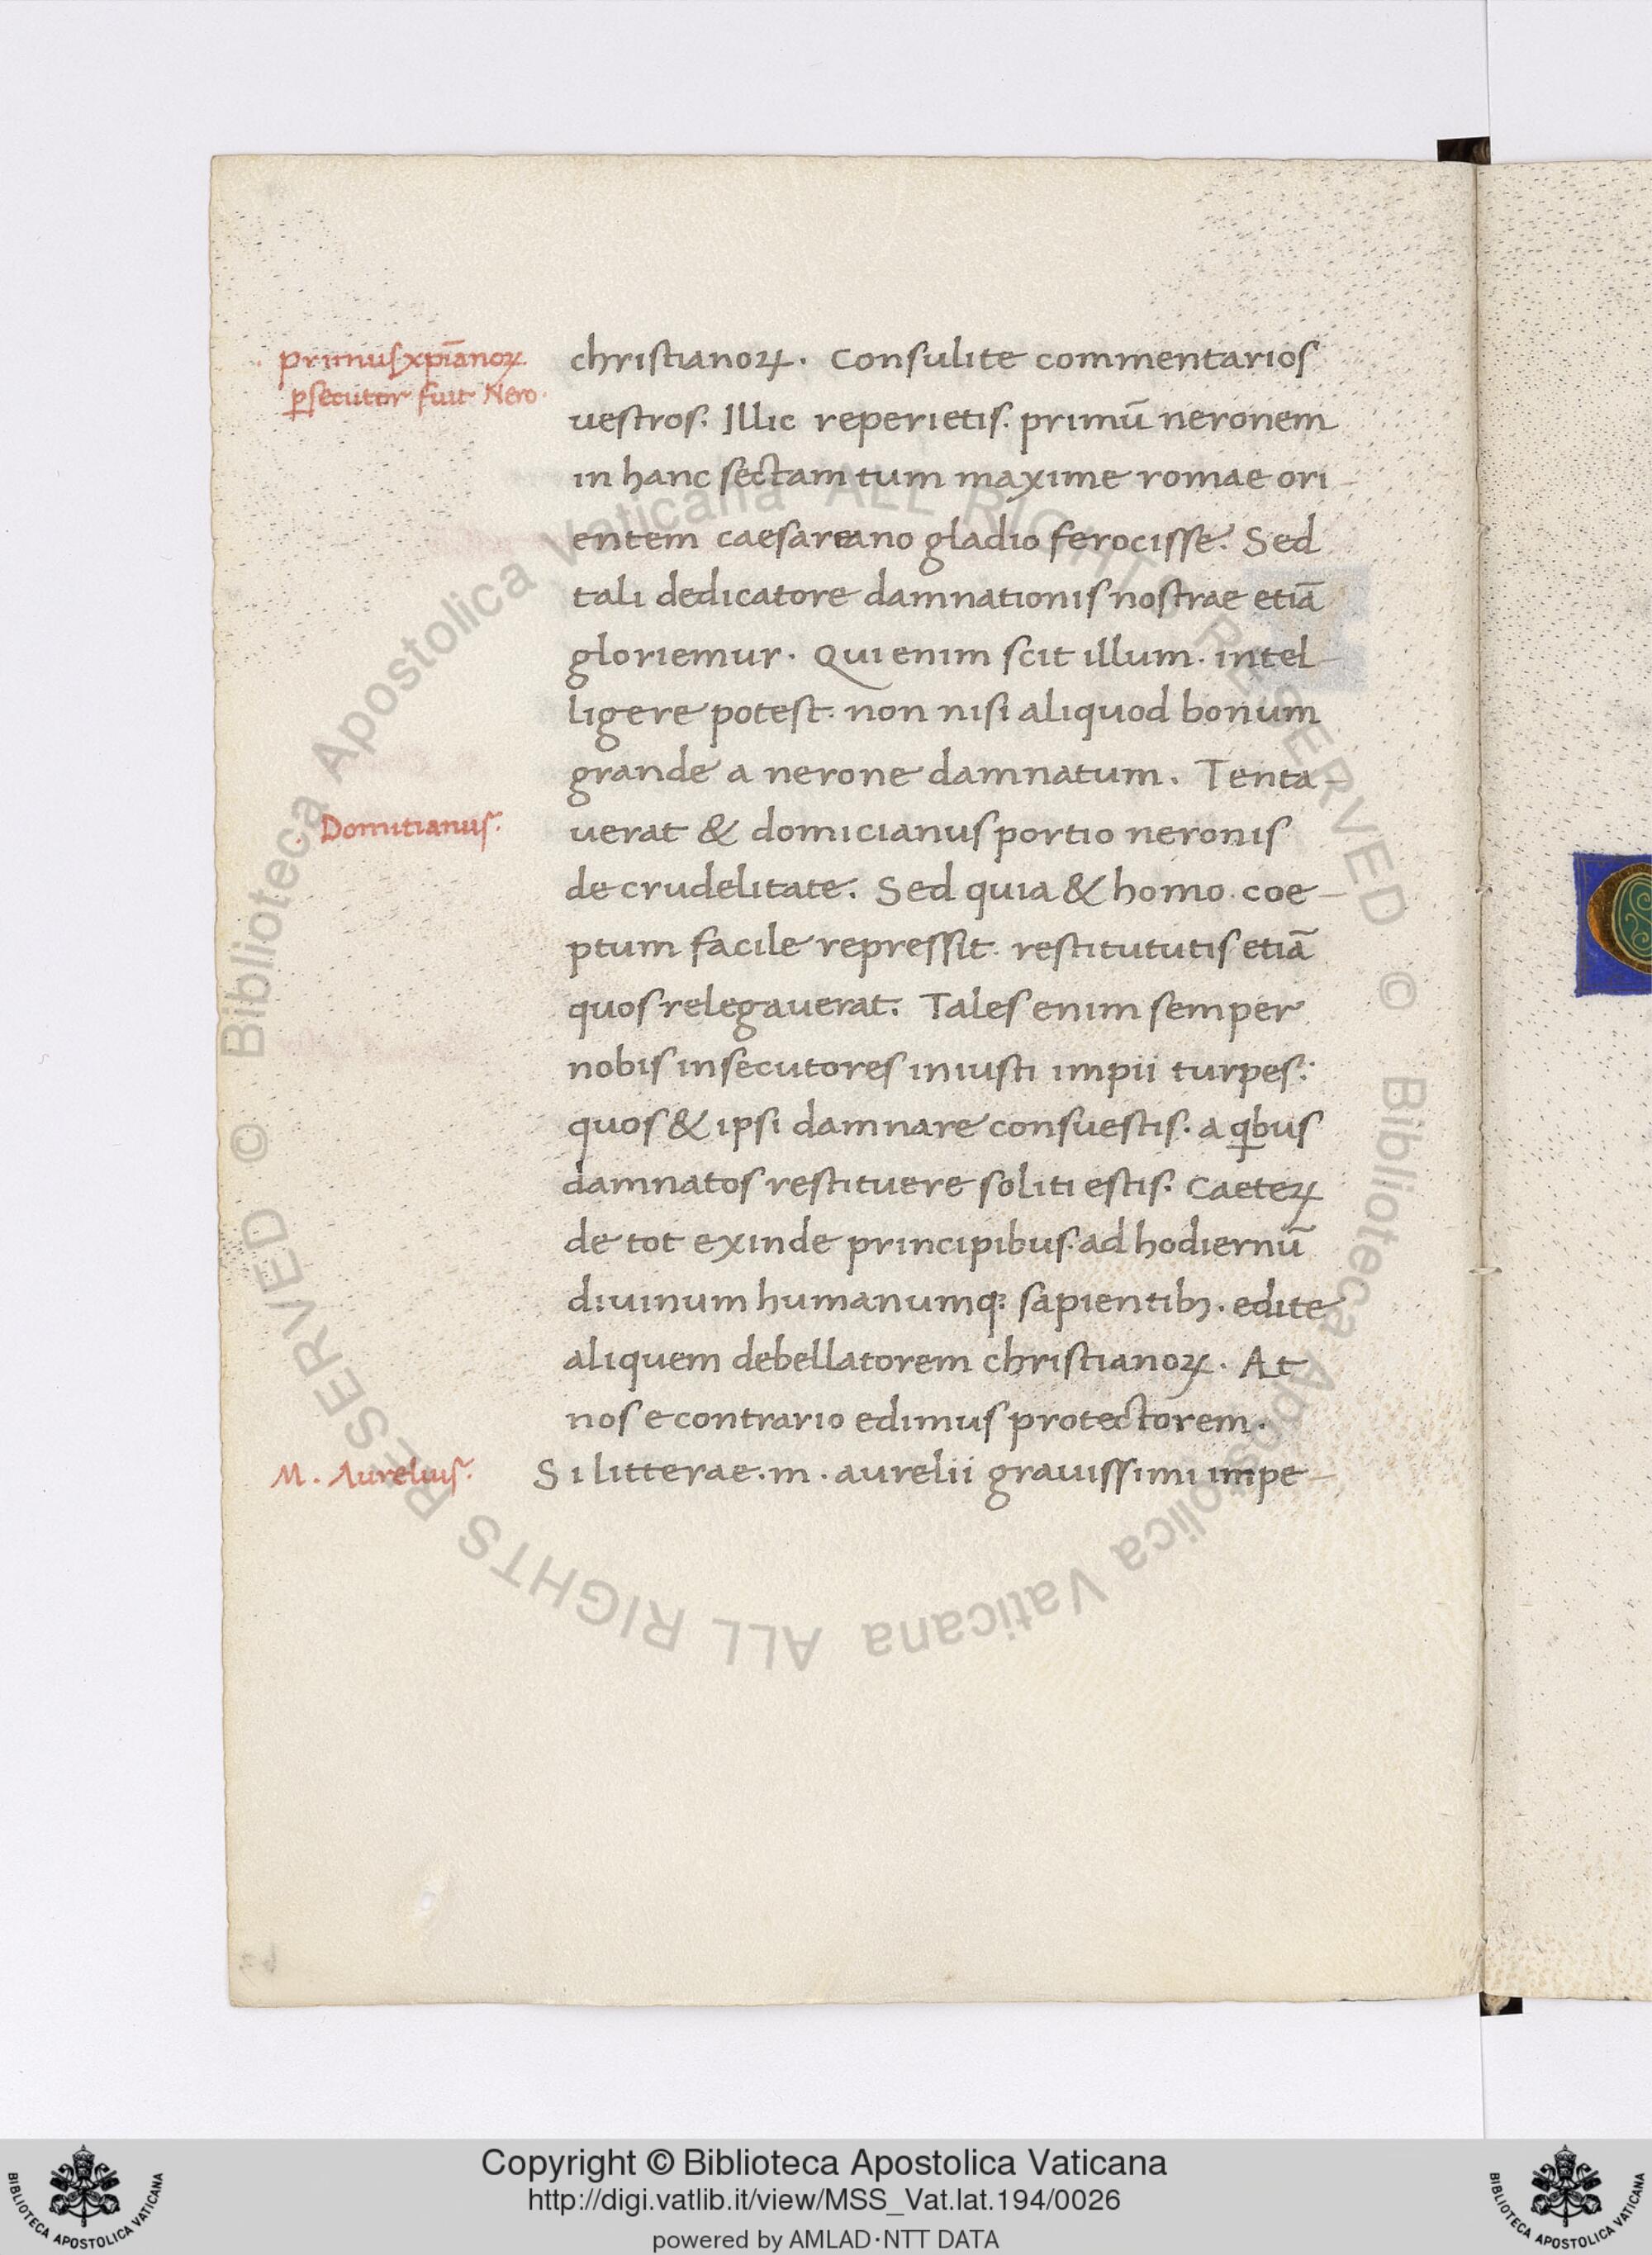 primus xp̄ianoꝝ
ꝑsecutor fuit Nero.
christianoꝝ. Consulite commentarios
uestros. Illic reperietis. primū neronem
in hanc sectam tum maxime romae ori-
entem caesareano gladio ferocisse. Sed
tali dedicatore damnationis nostrae etiā
gloriemur. Qui enim scit illum. intel-
ligere potest. non nisi aliquod bonum
grande a nerone damnatum. Tenta-
Domitianus.
uerat & domicianus portio neronis
de crudelitate. Sed quia & homo. coe-
ptum facile repressit. restitututis etiā
quos relegauerat. Tales enim semper
nobis insecutores iniusti impii turpes:
quos & ipsi damnare consuestis. a ꝗbus
damnatos restituere soliti estis. Caeteꝝ
de tot exinde principibus. ad hodiernū
diuinum humanumq; sapientibꝫ. edite
aliquem debellatorem christianoꝝ. At
nos e contrario edimus protectorem.
M. Aurelius.
Si litterae. m. aurelii grauissimi impe-
© Biblioteca Apostolica Vaticana ALL RIGHTS RESERVED © Biblioteca Apostolica Vaticana ALL RIGHTS RESERVED
Copyright © Biblioteca Apostolica Vaticana
http://digi.vatlib.it/view/MSS_Vat.lat.194/0026
powered by AMLAD·NTT DATA
BIBLIOTECA APOSTOLICA VATICANA
BIBLIOTECA APOSTOLICA VATICANA